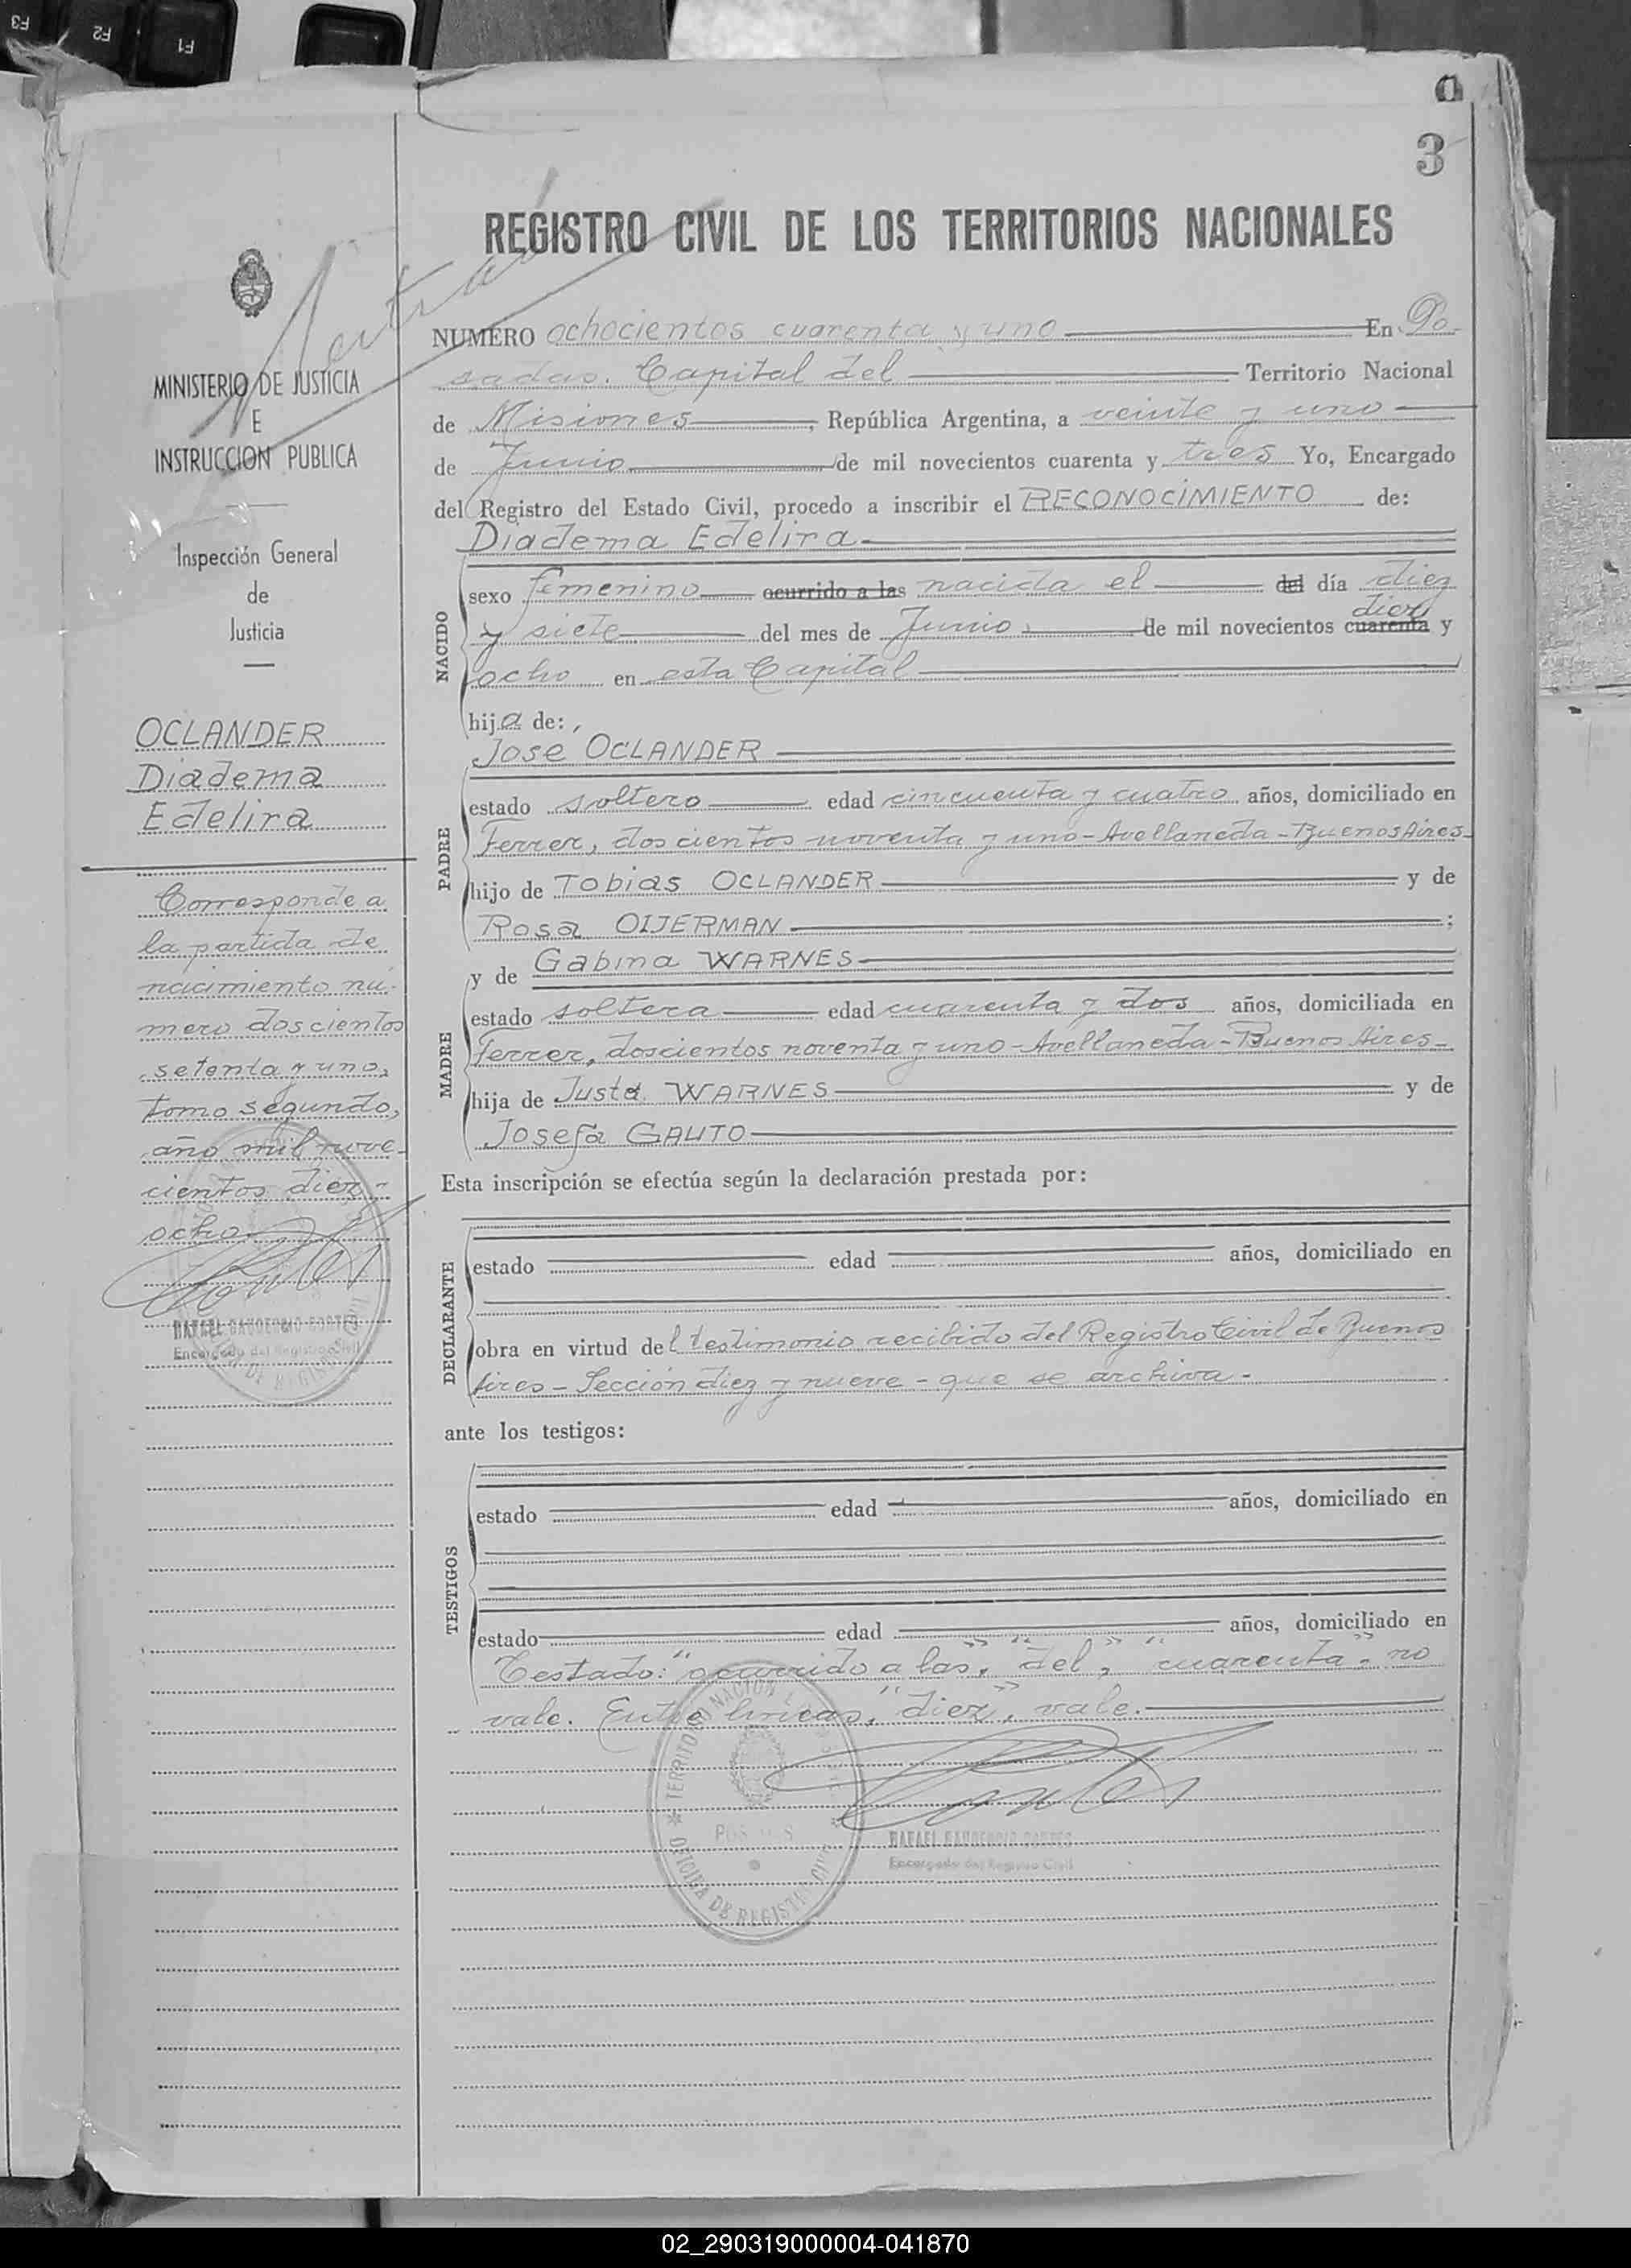 F3 F2 F1
3
REGISTRO CIVIL DE LOS TERRITORIOS NACIONALES
MINISTERIO DE JUSTICIA
E
INSTRUCCION PUBLICA
Inspección General
de
Justicia
OCLANDER
Diadema
Edelira
Corresponde a
la partida de
nacimiento nú-
mero doscientos
setenta y uno,
tomo segundo,
año mil nove-
cientos diez-
ocho.
RAFAEL GAUDENCIO CORTES
Encargado del Registro Civil
NUMERO ochocientos cuarenta y uno En Po-
sadas. Capital del Territorio Nacional
de Misiones, República Argentina, a veinte y uno
de Junio de mil novecientos cuarenta y tres Yo, Encargado
del Registro del Estado Civil, procedo a inscribir el RECONOCIMIENTO de:
Diadema Edelira
NACIDO
sexo femenino ocurrido a las nacida el del día diez
y siete del mes de Junio de mil novecientos cuarenta diez y
ocho en esta Capital
hija de:
PADRE
Jose OCLANDER
estado soltero edad cincuenta y cuatro años, domiciliado en
Ferrer, doscientos noventa y uno - Avellaneda - Buenos Aires
hijo de Tobias OCLANDER y de
Rosa OIJERMAN ;
MADRE
y de Gabina WARNES
estado soltera edad cuarenta y dos años, domiciliada en
Ferrer, doscientos noventa y uno - Avellaneda - Buenos Aires -
hija de Justa WARNES y de
Josefa GAUTO
Esta inscripción se efectúa según la declaración prestada por:
DECLARANTE
estado edad años, domiciliado en
obra en virtud del testimonio recibido del Registro Civil de Buenos
Aires - Sección diez y nueve - que se archiva -
ante los testigos:
TESTIGOS
estado edad años, domiciliado en
estado edad años, domiciliado en
Testado: "ocurrido a las", "del", "cuarenta" no
vale. Entre lineas, "diez", vale.
TERRITORIO NACIONAL
OFICINA DE REGISTRO CIVIL
RAFAEL GAUDENCIO CORTES
Encargado del Registro Civil
02_290319000004-041870